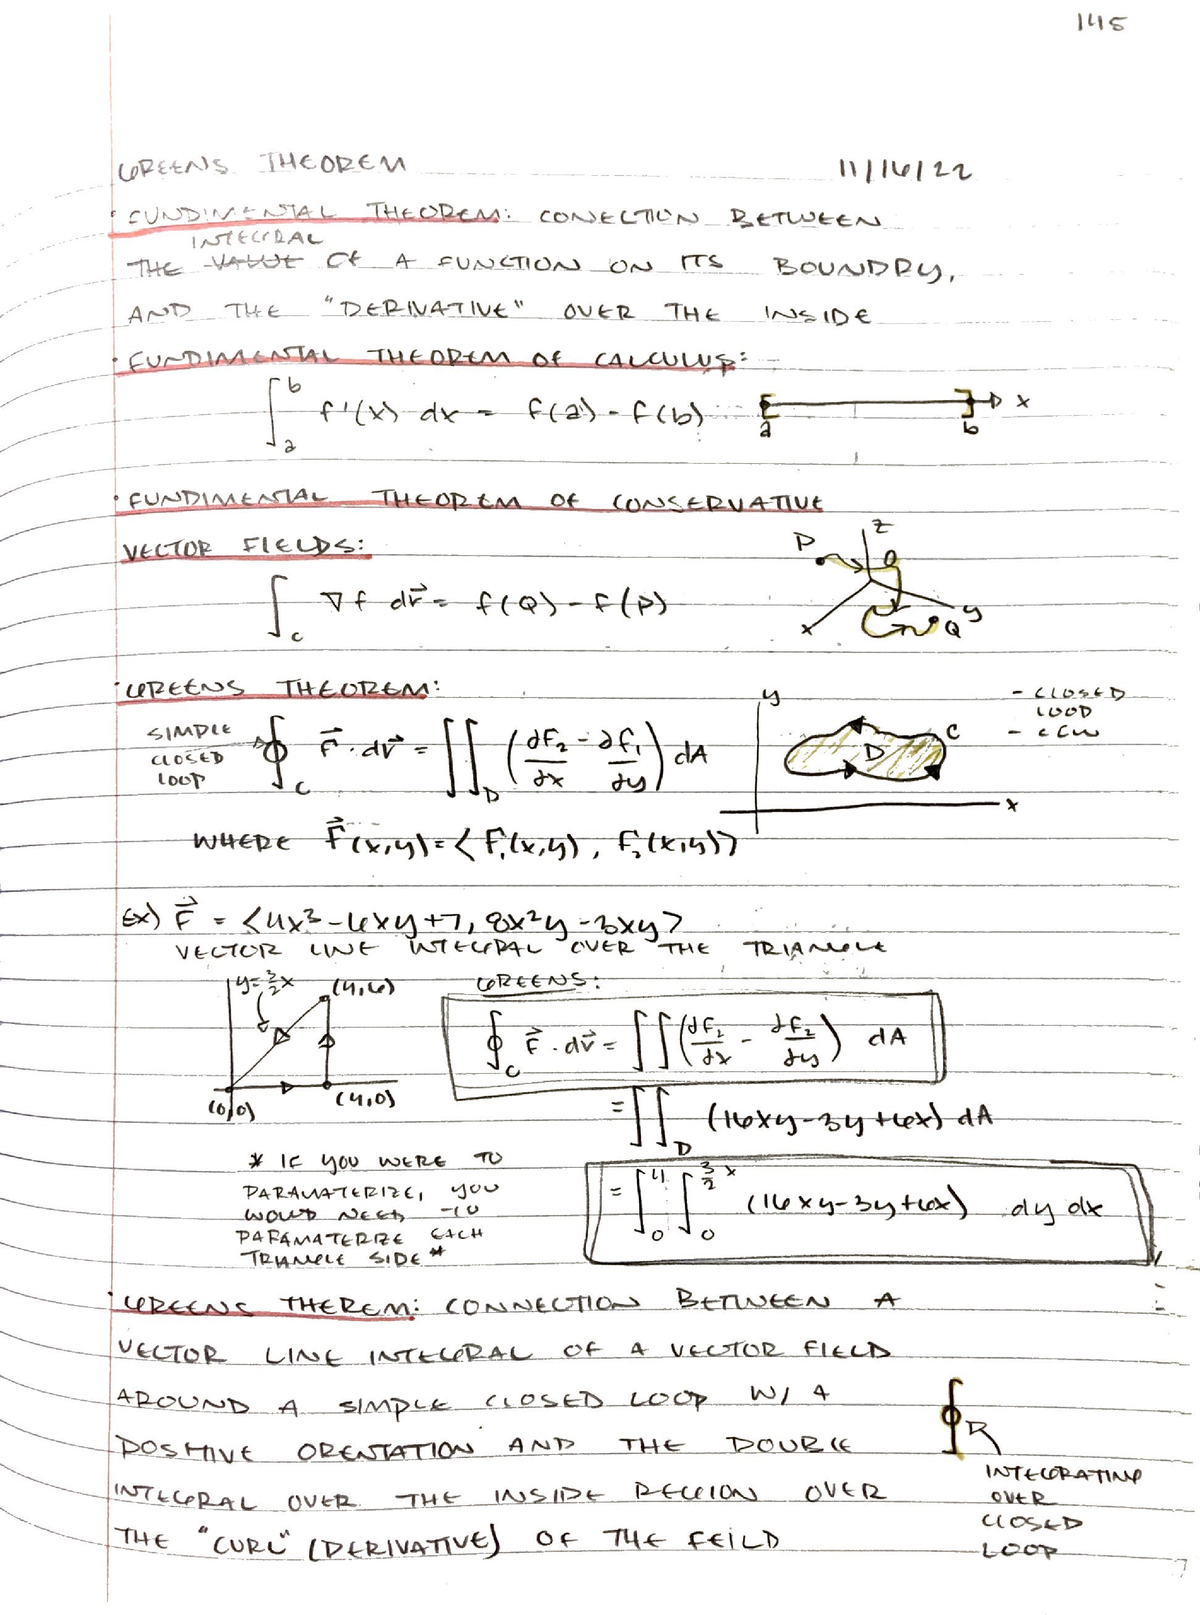 145
GREENS THEOREM 11/16/22
· FUNDIMENTAL THEOREM: CONECTION BETWEEN
INTEGRAL
THE VALUE OF A FUNCTION ON ITS BOUNDRY,
AND THE "DERIVATIVE" OVER THE INSIDE
· FUNDIMENTAL THEOREM OF CALCULUS:
∫_a^b f'(x) dx = f(a) - f(b) a b x
· FUNDIMENTAL THEOREM OF CONSERVATIVE
VECTOR FIELDS:
∫_C ∇f dr⃗ = f(Q) - f(P) P z x y Q
· GREENS THEOREM:
SIMPLE CLOSED LOOP ∮_C F⃗ · dr⃗ = ∬_D (∂F₂/∂x - ∂F₁/∂y) dA y C D x - CLOSED LOOP - CCW
WHERE F⃗(x,y) = <F₁(x,y), F₂(x,y)>
EX) F⃗ = <4x³-6xy+7, 8x²y-3xy>
VECTOR LINE INTEGRAL OVER THE TRIANGLE
y=3/2x (4,6) GREENS:
∮_C F⃗ · dr⃗ = ∬(∂F₂/∂x - ∂F₂/∂y) dA
(0,0) (4,0)
= ∬_D (16xy-3y+6x) dA
* IF YOU WERE TO
PARAMATERIZE, YOU
WOULD NEED TO
PARAMATERIZE EACH
TRIANGLE SIDE *
= ∫_0^4 ∫_0^{3/2 x} (16xy-3y+6x) dy dx
· GREENS THEREM: CONNECTION BETWEEN A
VECTOR LINE INTEGRAL OF A VECTOR FIELD
AROUND A SIMPLE CLOSED LOOP W/ A
POSITIVE ORENTATION AND THE DOUBLE
INTEGRAL OVER THE INSIDE REGION OVER
THE "CURL" (DERIVATIVE) OF THE FEILD
∮
INTEGRATING
OVER
CLOSED
LOOP